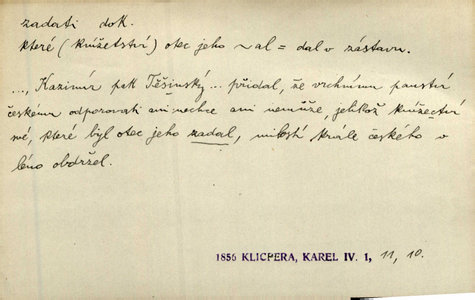 zadati dok.
které (knížetství) otec jeho ~al = dal v zástavu.
..., Kazimír pak Těšínský... přidal, že vrchnímu panství
českému odporovati ani nechce ani nemůže, jelikož knížectví
své, které byl otec jeho zadal, milostí krále českého v
léno obdržel.
1856 KLICPERA, KAREL IV. 1, 11, 10.